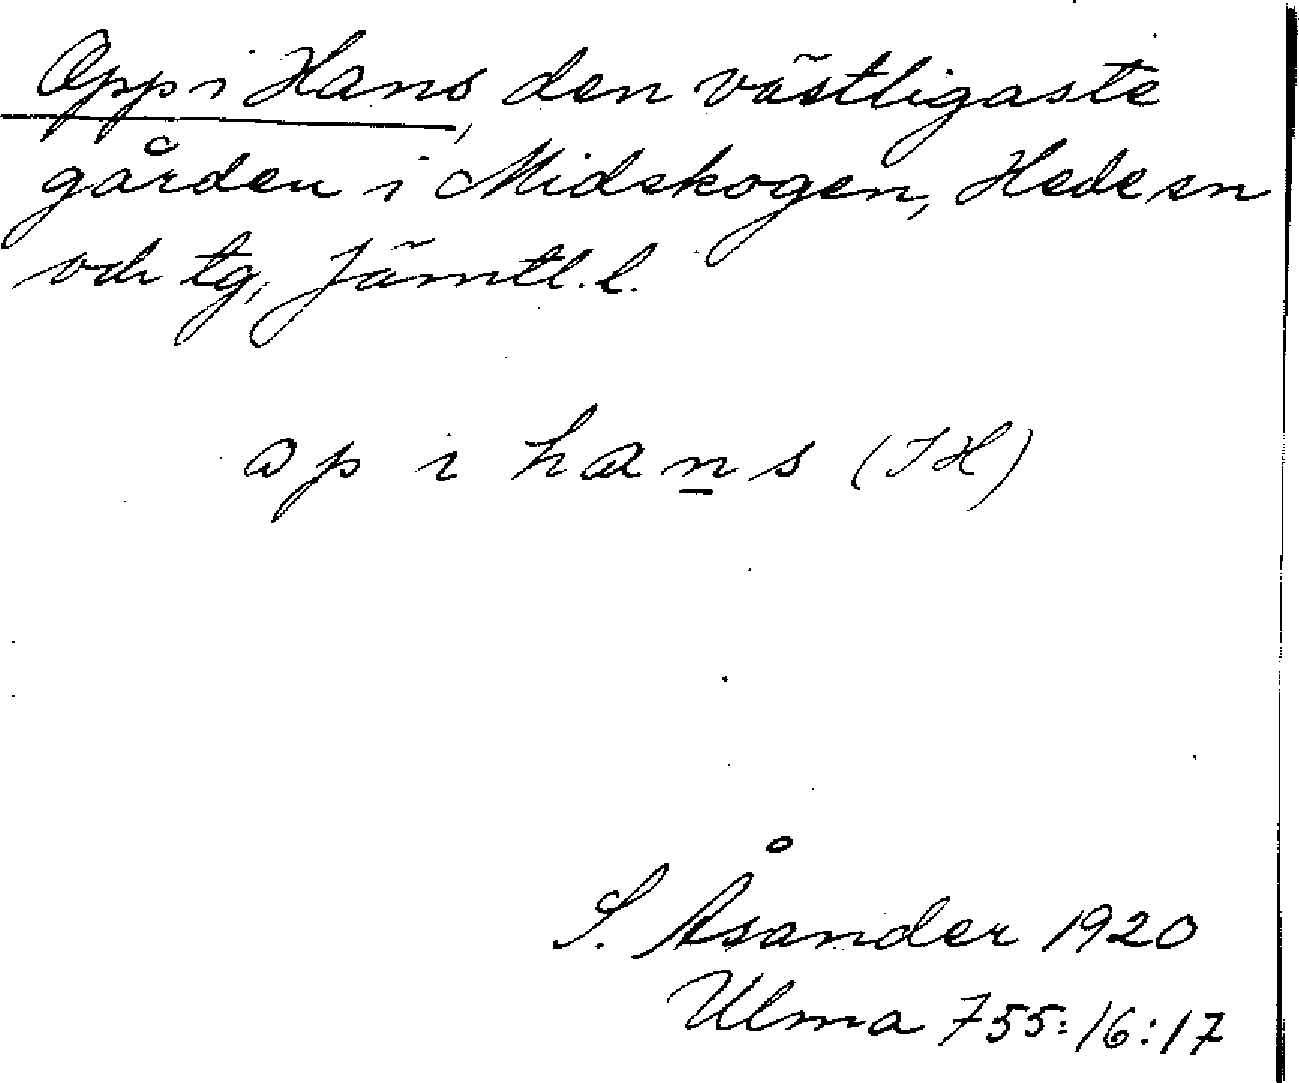 Opp i Hans, den västligaste
gården i Midskogen, Hede sn
och tg, Jämtl. l.
op i hans (IH)
S. Åsander 1920
Ulma 755:16:17